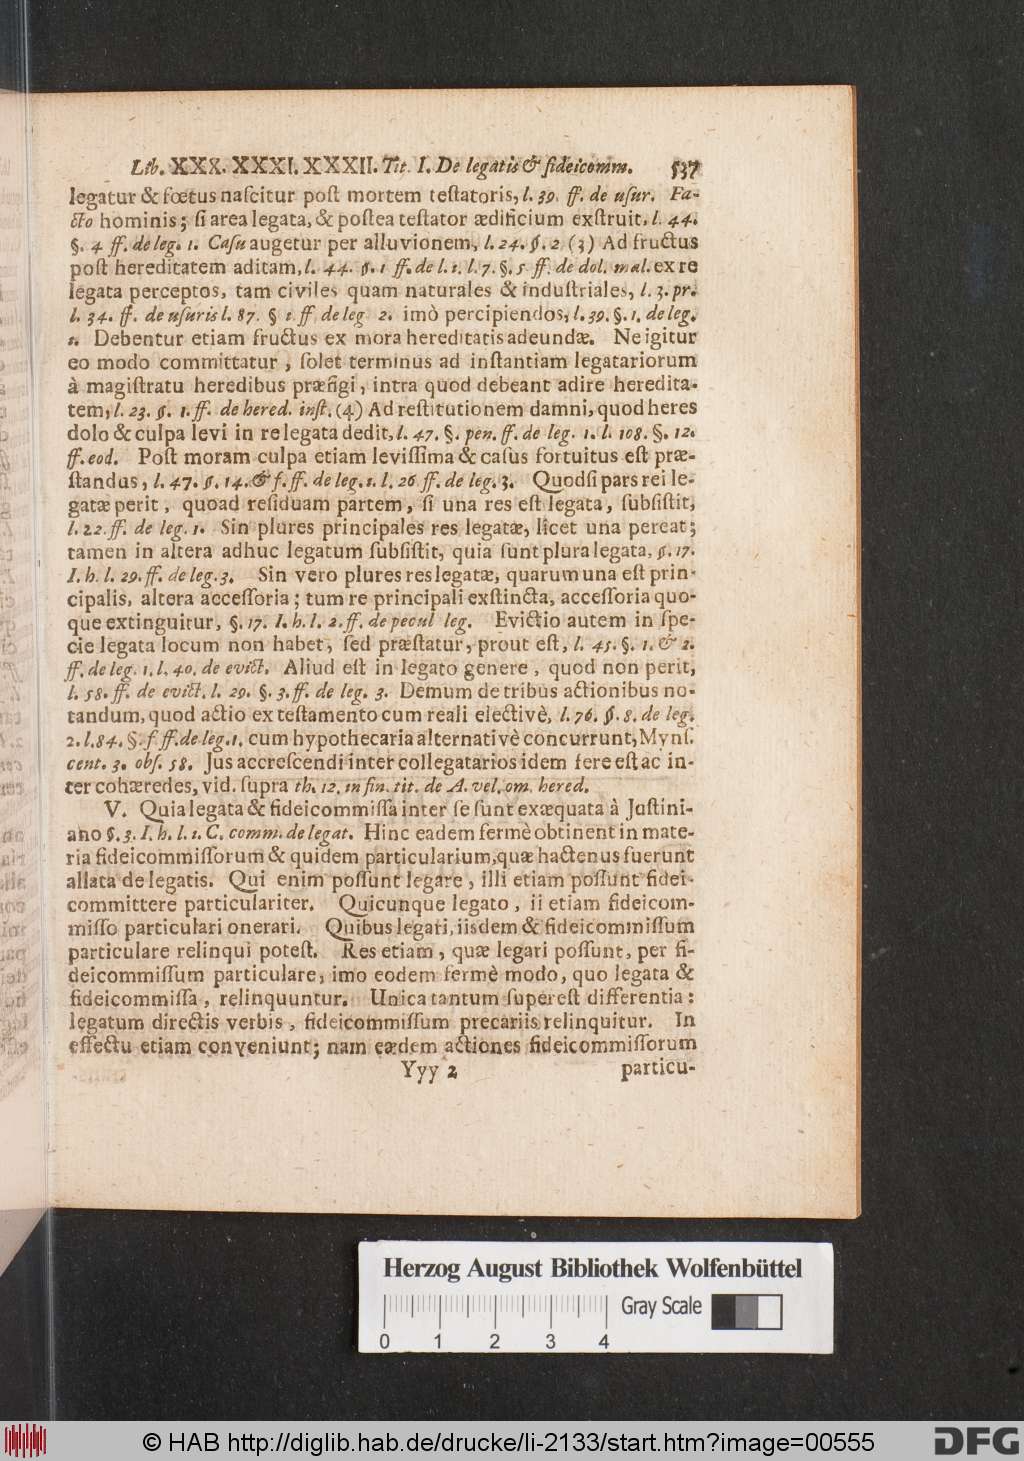 Lib. XXX. XXXI. XXXII. Tit. I. De legatis & fideicomm. 537
legatur & fœtus naſcitur poſt mortem teſtatoris, l. 39. ff. de uſur. Fa-
cto hominis; ſi area legata, & poſtea teſtator ædificium exſtruit, l. 44.
§. 4 ff. de leg. 1. Caſu augetur per alluvionem, l. 24. §. 2 (3) Ad fructus
poſt hereditatem aditam, l. 44. §. 1 ff. de l. 1. l. 7. §. 5 ff. de dol. mal. ex re
legata perceptos, tam civiles quam naturales & induſtriales, l. 3. pr.
l. 34. ff. de uſuris l. 87. § 1 ff de leg 2. imò percipiendos, l. 39. §. 1. de leg.
1. Debentur etiam fructus ex mora hereditatis adeundæ. Ne igitur
eo modo committatur, ſolet terminus ad inſtantiam legatariorum
à magiſtratu heredibus præfigi, intra quod debeant adire heredita-
tem, l. 23. §. 1. ff. de hered. inſt. (4) Ad reſtitutionem damni, quod heres
dolo & culpa levi in re legata dedit, l. 47. §. pen. ff. de leg. 1. l. 108. §. 12.
ff. eod. Poſt moram culpa etiam leviſſima & caſus fortuitus eſt præ-
ſtandus, l. 47. §. 14. & f. ff. de leg. 1. l. 26. ff. de leg. 3. Quodſi pars rei le-
gatæ perit, quoad reſiduam partem, ſi una res eſt legata, ſubſiſtit,
l. 22. ff. de leg. 1. Sin plures principales res legatæ, licet una pereat;
tamen in altera adhuc legatum ſubſiſtit, quia ſunt plura legata, §. 17.
I. h. l. 29. ff. de leg. 3. Sin vero plures res legatæ, quarum una eſt prin-
cipalis, altera acceſſoria; tum re principali exſtincta, acceſſoria quo-
que extinguitur, §. 17. I. h. l. 2. ff. de pecul leg. Evictio autem in ſpe-
cie legata locum non habet, ſed præſtatur, prout eſt, l. 45. §. 1. & 2.
ff. de leg. 1. l. 40. de evict. Aliud eſt in legato genere, quod non perit,
l. 58. ff. de evict. l. 29. §. 3. ff. de leg. 3. Demum de tribus actionibus no-
tandum, quod actio ex teſtamento cum reali electivè, l. 76. §. 8. de leg.
2. l. 84. §. f ff. de leg. 1. cum hypothecaria alternativè concurrunt, Mynſ.
cent. 3. obſ. 58. Jus accreſcendi inter collegatarios idem fere eſt ac in-
ter cohæredes, vid. ſupra th. 12. in fin. tit. de A. vel. om. hered.
V. Quia legata & fideicommiſſa inter ſe ſunt exæquata à Juſtini-
ano §. 3. I. h. l. 1. C. comm. de legat. Hinc eadem fermè obtinent in mate-
ria fideicommiſſorum & quidem particularium, quæ hactenus fuerunt
allata de legatis. Qui enim poſſunt legare, illi etiam poſſunt fidei-
committere particulariter. Quicunque legato, ii etiam fideicom-
miſſo particulari onerari. Quibus legari, iisdem & fideicommiſſum
particulare relinqui poteſt. Res etiam, quæ legari poſſunt, per fi-
deicommiſſum particulare, imo eodem fermè modo, quo legata &
fideicommiſſa, relinquuntur. Unica tantum ſupereſt differentia:
legatum directis verbis, fideicommiſſum precariis relinquitur. In
effectu etiam conveniunt; nam eædem actiones fideicommiſſorum
Yyy 2 particu-
Herzog August Bibliothek Wolfenbüttel
Gray Scale
0 1 2 3 4
© HAB http://diglib.hab.de/drucke/li-2133/start.htm?image=00555
DFG